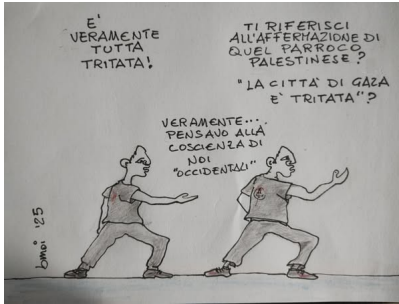 E'
VERAMENTE
TUTTA
TRITATA!
TI RIFERISCI
ALL'AFFERMAZIONE DI
QUEL PARROCO
PALESTINESE?
"LA CITTÀ DI GAZA
E' TRITATA"?
VERAMENTE...
PENSAVO ALLA
COSCIENZA DI
NOI
"OCCIDENTALI"
bmoi '25